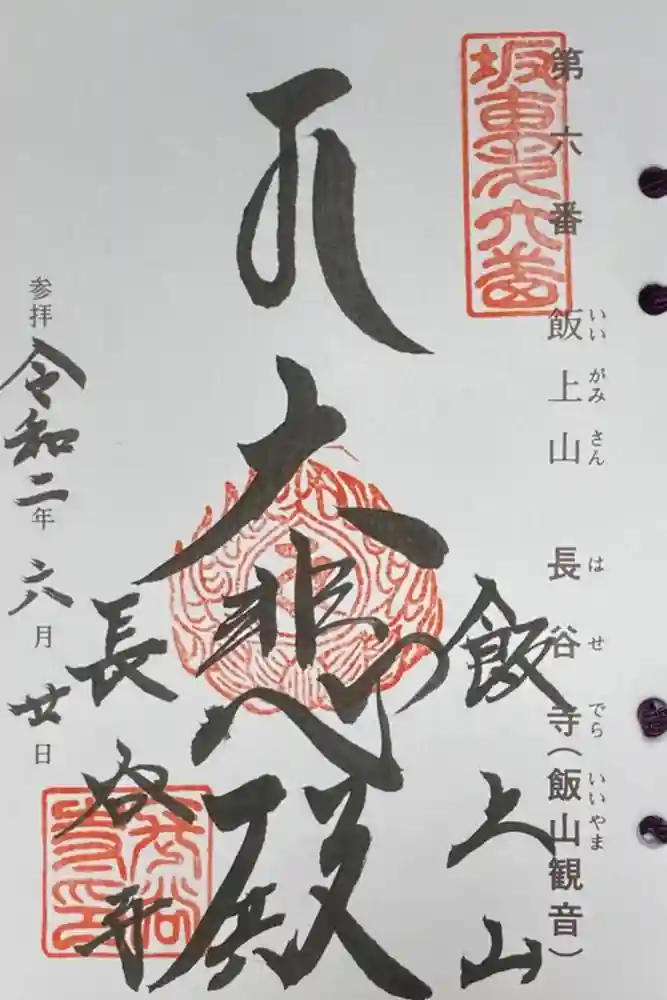 第六番 飯上山 長谷寺(飯山観音)
いいがみさん はせでら いいやま
坂東第六番
飯上山
大悲殿
長谷寺
参拝 令和二年 六月 廿日